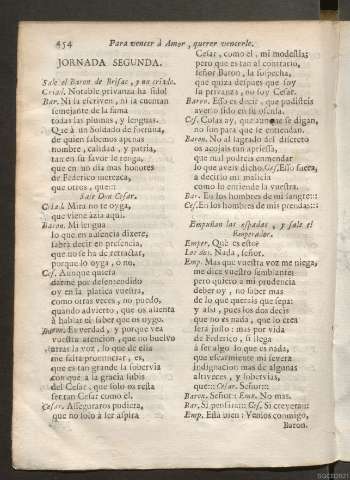 454
Para vencer à Amor, querer vencerle.
JORNADA SEGUNDA.
Sale el Baron de Brisac, y un criado.
Criad. Notable privanza ha sido!
Bar. Ni la escriven, ni la cuentan
semejante de la fama
todas las plumas, y lenguas.
Que à un Soldado de fortuna,
de quien sabemos apenas
nombre, calidad, y patria,
tan en su favor le tenga,
que en un dia mas honores
de Federico merezca,
que otros, que:::
Sale Don Cesar.
Criad. Mira no te oyga,
que viene àzia aqui.
Baron. Mi lengua
lo que en ausencia dixere,
sabrà decir en presencia,
que no se ha de retractar,
porque lo oyga, ò no.
Ces. Aunque quiera
darme por desentendido
oy en la platica vuestra,
como otras veces, no puedo,
quando advierto, que os alienta
à hablar el saber que os oygo.
Baron. Es verdad, y porque vea
vuestra atencion, que no buelvo
atras la voz, lo que de ella
me falta pronunciar, es,
que es tan grande la sobervia
con que à la gracia subis
del Cesar, que solo os resta
ser tan Cesar como èl.
Cesar. Aseguraros pudiera,
que no solo à ser aspira
Cesar, como el, mi modestia;
pero que es tan al contrario,
señor Baron, la sospecha,
que quiza despues que soy
su privanza, no soy Cesar.
Baron. Esso es decir, que pudisteis
averlo sido en su ofensa.
Ces. Cosas ay, que aunque se digan,
no son para que se entiendan.
Baron. No al sagrado del discreto
os acojais tan aprissa,
que mal podreis enmendar
lo que aveis dicho. Ces. Esso fuera,
a decirlo mi malicia
como lo entiende la vuestra.
Bar. En los hombres de mi sangre:::
Ces. En los hombres de mis prendas:::
Empuñan las espadas, y sale el
Emperador.
Emper. Què es esto?
Los dos. Nada, señor.
Emp. Mas que vuestra voz me niega,
me dice vuestro semblante;
pero quiero a mi prudencia
deber oy, no saber mas
de lo que querais que sepa:
y assi, pues los dos decis
que no es nada, que lo crea
serà justo: mas por vida
de Federico, si llega
à ser algo lo que es nada,
que escarmiente mi severa
indignacion mas de algunas
altiveces, y sobervias,
que::: Cesar. Señor:::
Baron. Señor: Emp. No mas.
Bar. Si pensàra::: Ces. Si creyera:::
Emp. Està bien: Venios conmigo,
Baron.